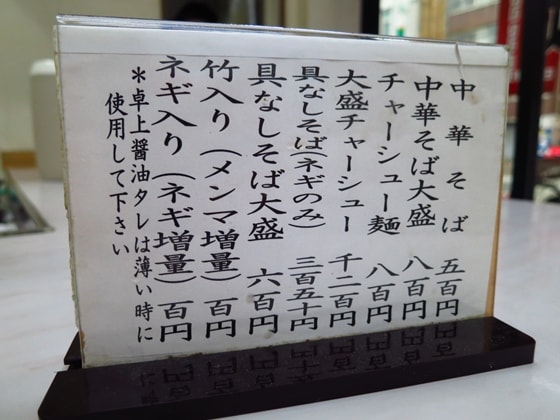 中華そば 五百円
中華そば大盛 八百円
チャーシュー麺 八百円
大盛チャーシュー 千二百円
具なしそば(ネギのみ) 三百五十円
具なしそば大盛 六百円
竹入り(メンマ増量) 百円
ネギ入り(ネギ増量) 百円
*卓上醤油タレは薄い時に
使用して下さい